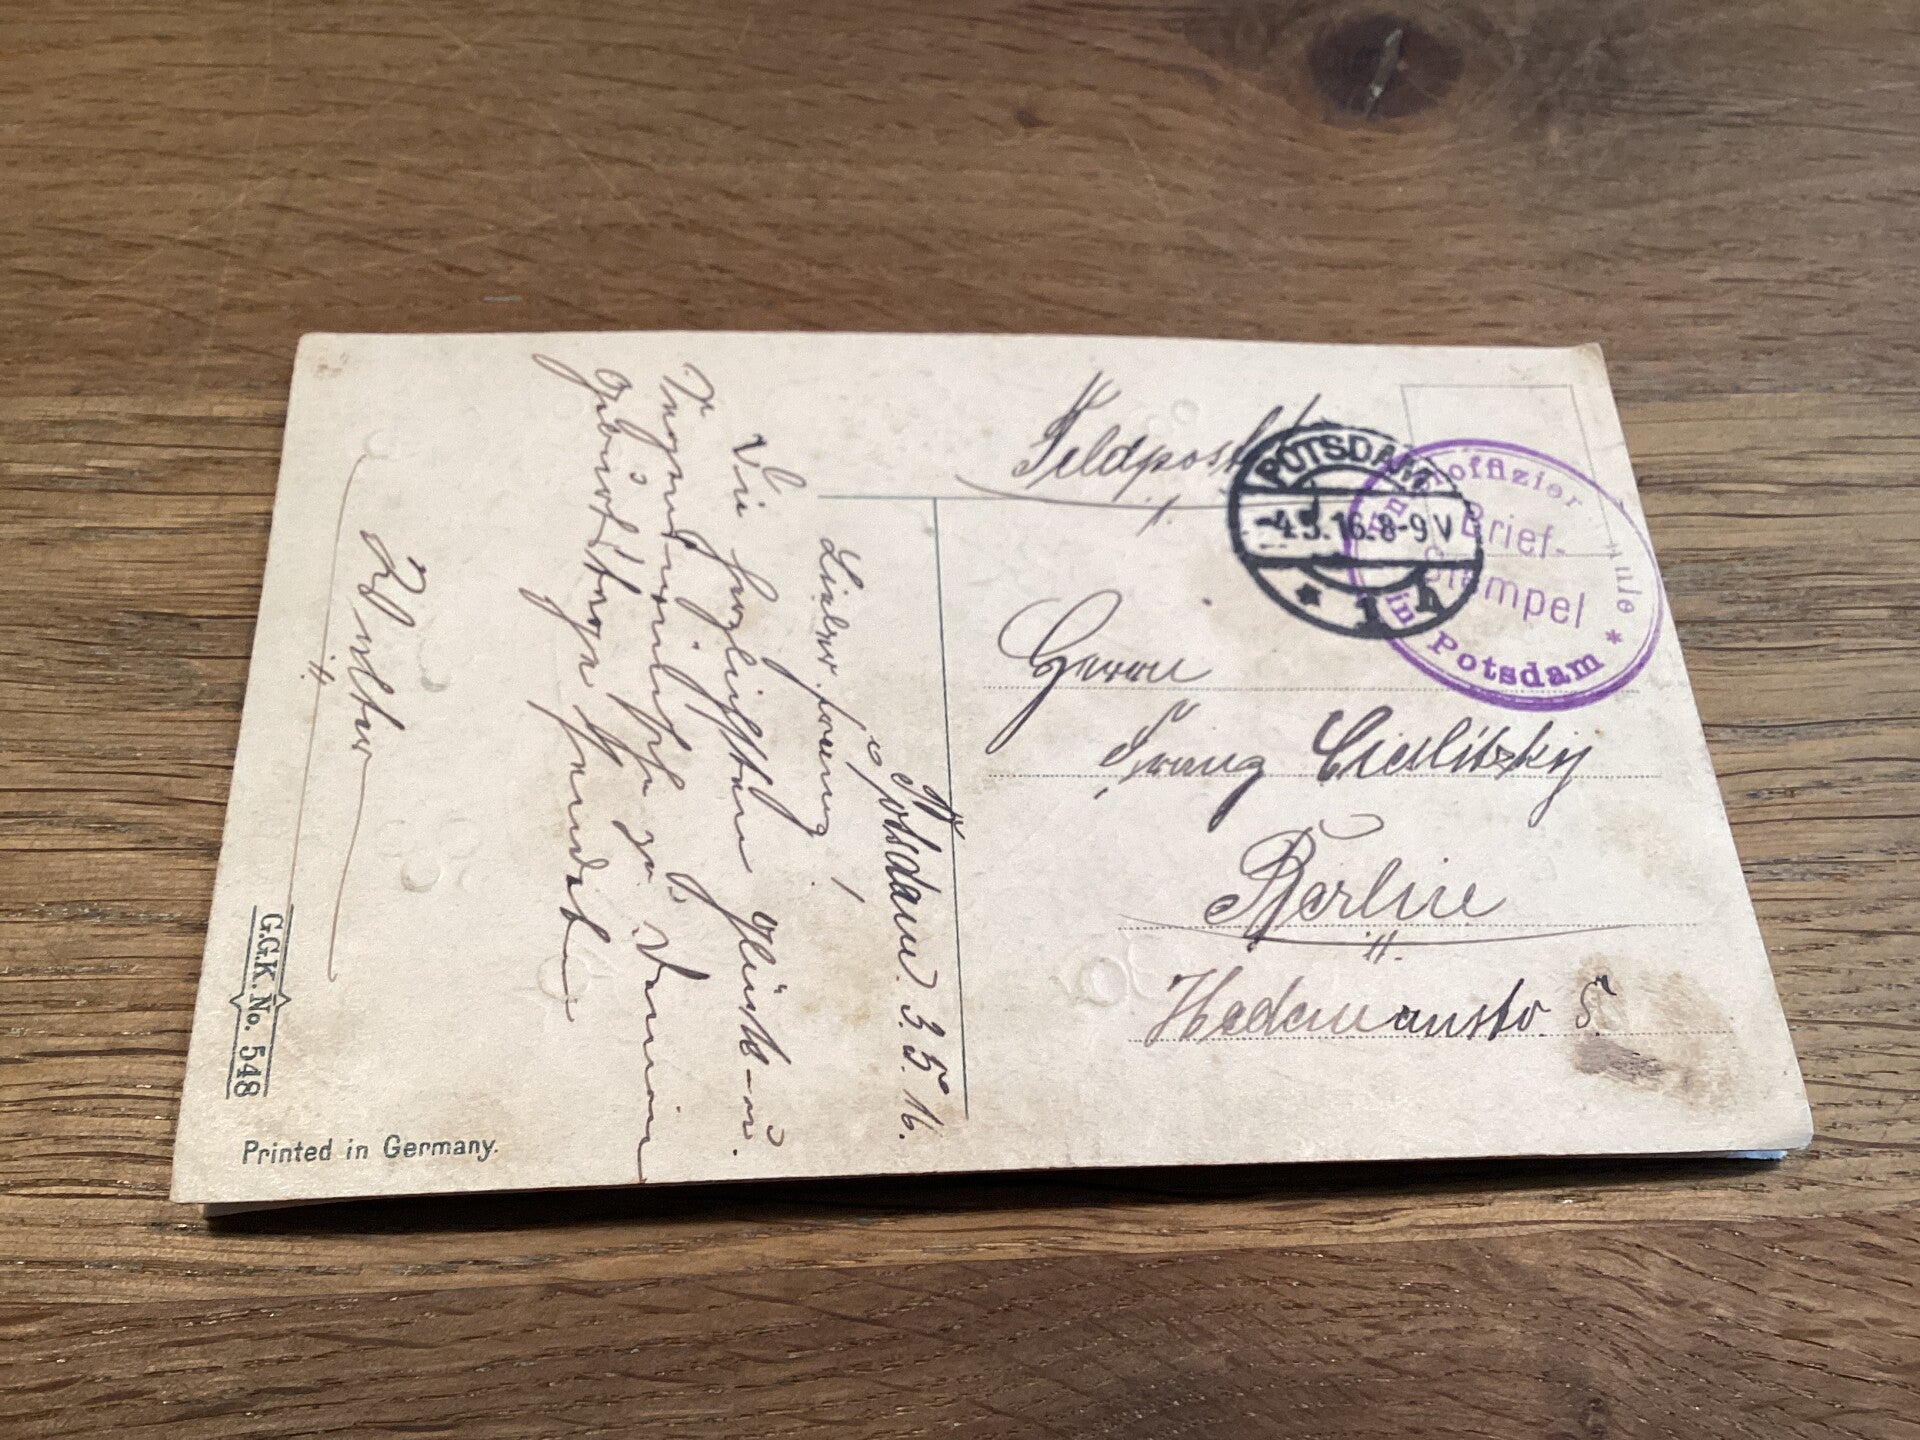 Feldpost
POTSDAM
-4.5.16.8-9V
* 1 h
Unteroffizier
Brief-
Stempel
in Potsdam *
Herrn
Franz Cieslitzky
Berlin
Hedemannstr. 5.
Potsdam. 3.5.16.
Lieber Franz!
Die herzlichsten Glück- u.
Segenswünsche zu Deinem
Geburtstage sendet
Walter
G.G.K. No. 548
Printed in Germany.